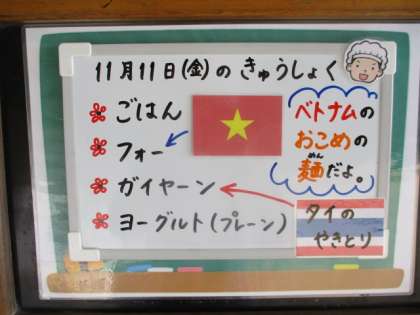 11月11日(金)のきゅうしょく
ごはん
フォー
ガイヤーン
ヨーグルト(プレーン)
ベトナムの
おこめの
麺だよ。
めん
タイの
やきとり